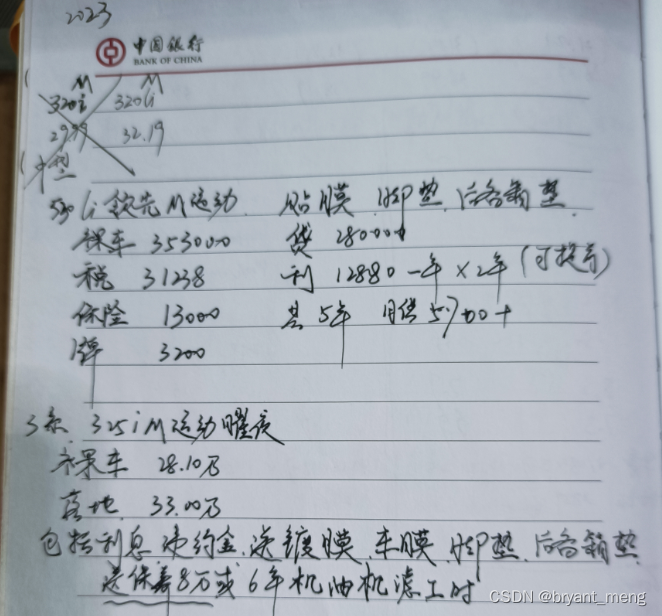 2023
中国银行
BANK OF CHINA
M M
320i 320li
29.99 32.19
中型
530 li 领先M运动 贴膜 脚垫 后备箱垫
裸车 353000 贷 280000
税 31238 利 12880 一年 ×2年 (可提前)
保险 13000 共 5年 月供 5700+
牌 3200
3系 325i M运动曜夜
裸车 28.10万
落地 33.00万
包括利息 违约金 送镀膜 车膜 脚垫 后备箱垫
送保养8万或6年机油机滤工时
CSDN @bryant_meng